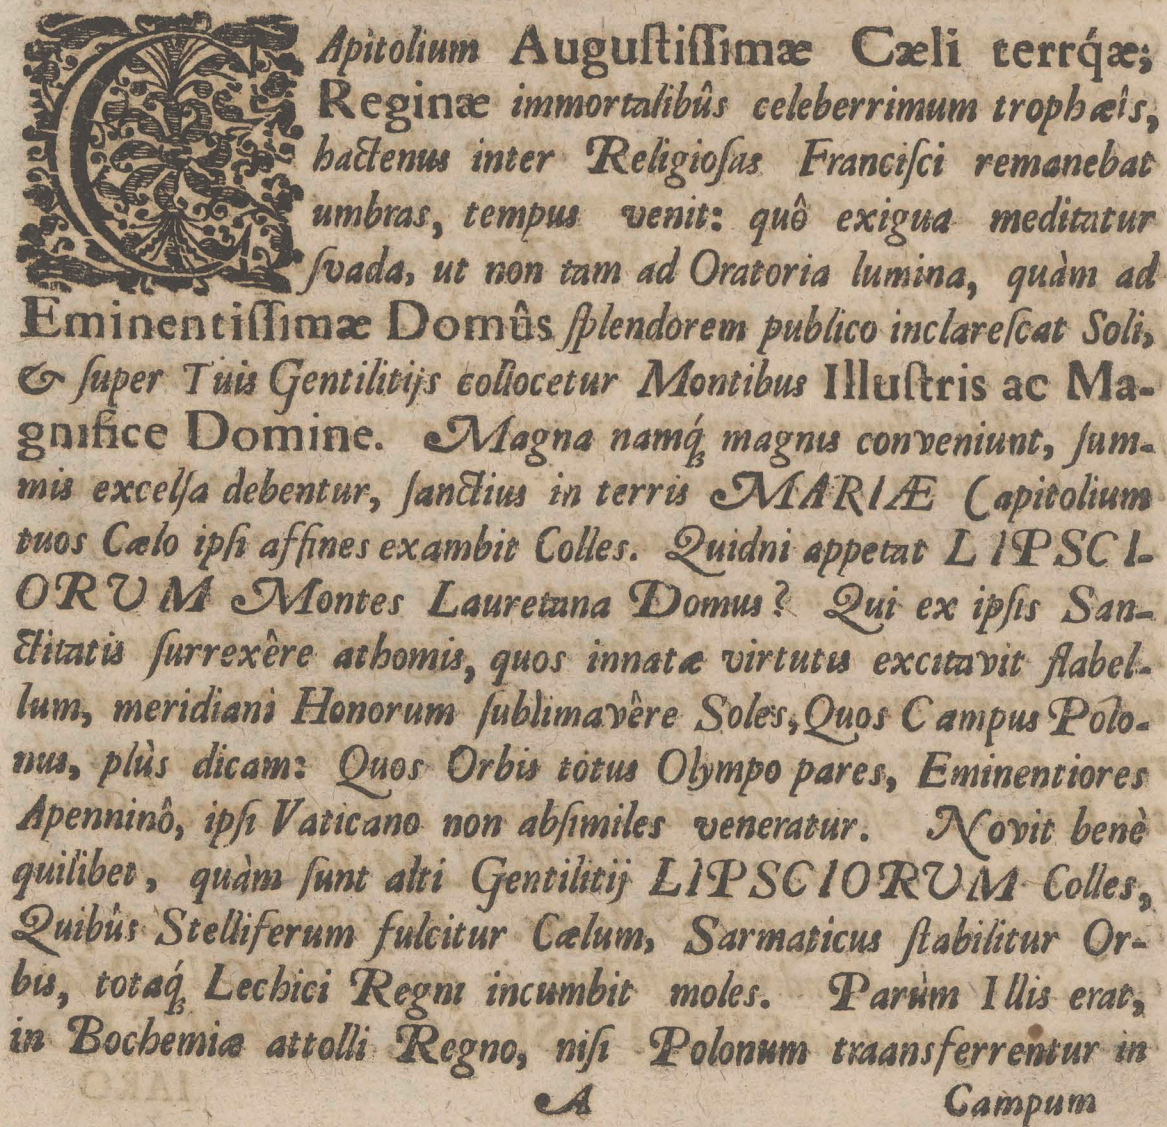 CApitolium Augustissimæ Cæli terrq́æ;
Reginæ immortalibûs celeberrimum trophæîs,
hactenus inter Religiosas Francisci remanebat
umbras, tempus venit: quô exigua meditatur
svada, ut non tam ad Oratoria lumina, quàm ad
Eminentissimæ Domûs splendorem publico inclarescat Soli,
& super Tuis Gentilitijs collocetur Montibus Illustris ac Ma-
gnifice Domine. Magna namq́ magnis conveniunt, sum-
mis excelsa debentur, sanctius in terris MARIÆ Capitolium
tuos Cælo ipsi affines exambit Colles. Quidni appetat LIPSCI-
ORUM Montes Lauretana Domus? Qui ex ipsis San-
ctitatis surrexêre athomis, quos innatæ virtutis excitavit flabel-
lum, meridiani Honorum sublimavêre Soles, Quos Campus Polo-
nus, plùs dicam: Quos Orbis totus Olympo pares, Eminentiores
Apenninô, ipsi Vaticano non absimiles veneratur. Novit benè
quilibet, quàm sunt alti Gentilitij LIPSCIORUM Colles,
Quibûs Stelliferum fulcitur Cælum, Sarmaticus stabilitur Or-
bis, totaq́ Lechici Regni incumbit moles. Parùm Illis erat,
in Bochemiæ attolli Regno, nisi Polonum traansferrentur in
A Campum